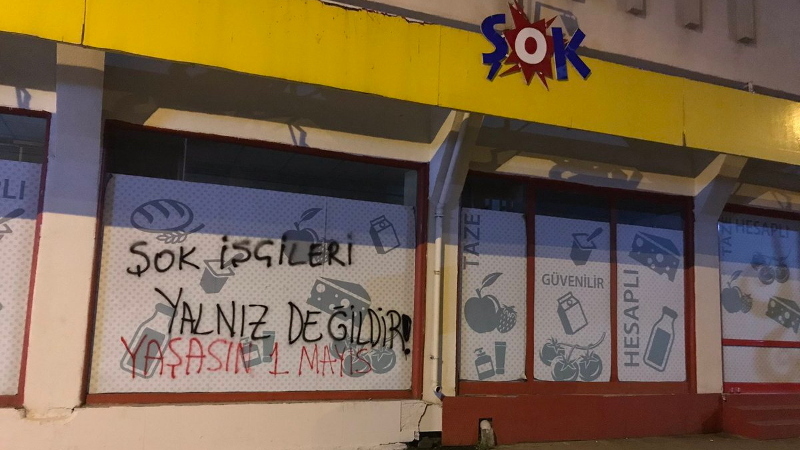 ŞOK
HESAPLI
ŞOK İŞGİLERİ
YALNIZ DEĞİLDİR!
YAŞASIN 1 MAYIS
TAZE
GÜVENİLİR
HESAPLI
HESAPLI